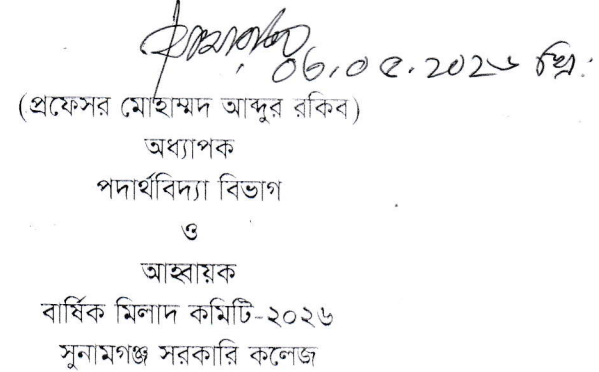 ০৬.০৫.২০২৬ খ্রি:
(প্রফেসর মোহাম্মদ আব্দুর রকিব)
অধ্যাপক
পদার্থবিদ্যা বিভাগ
ও
আহ্বায়ক
বার্ষিক মিলাদ কমিটি-২০২৬
সুনামগঞ্জ সরকারি কলেজ